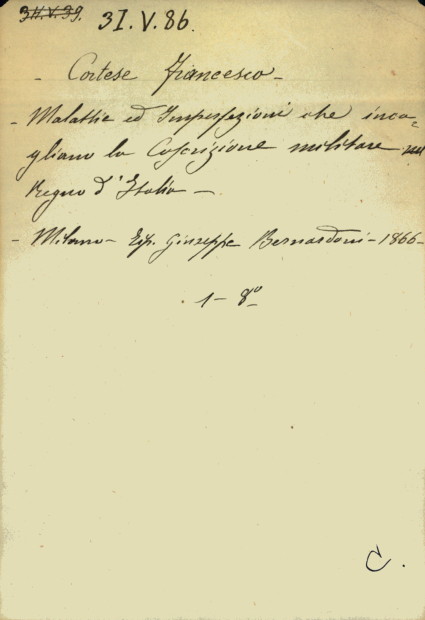 3I.V.86.
- Cortese Francesco -
- Malattie ed Imperfezioni che inca=
gliano la Coscrizione militare nel
Regno d'Italia -
- Milano - Tip. Giuseppe Bernardoni - 1866 -
1 - 8°
C.